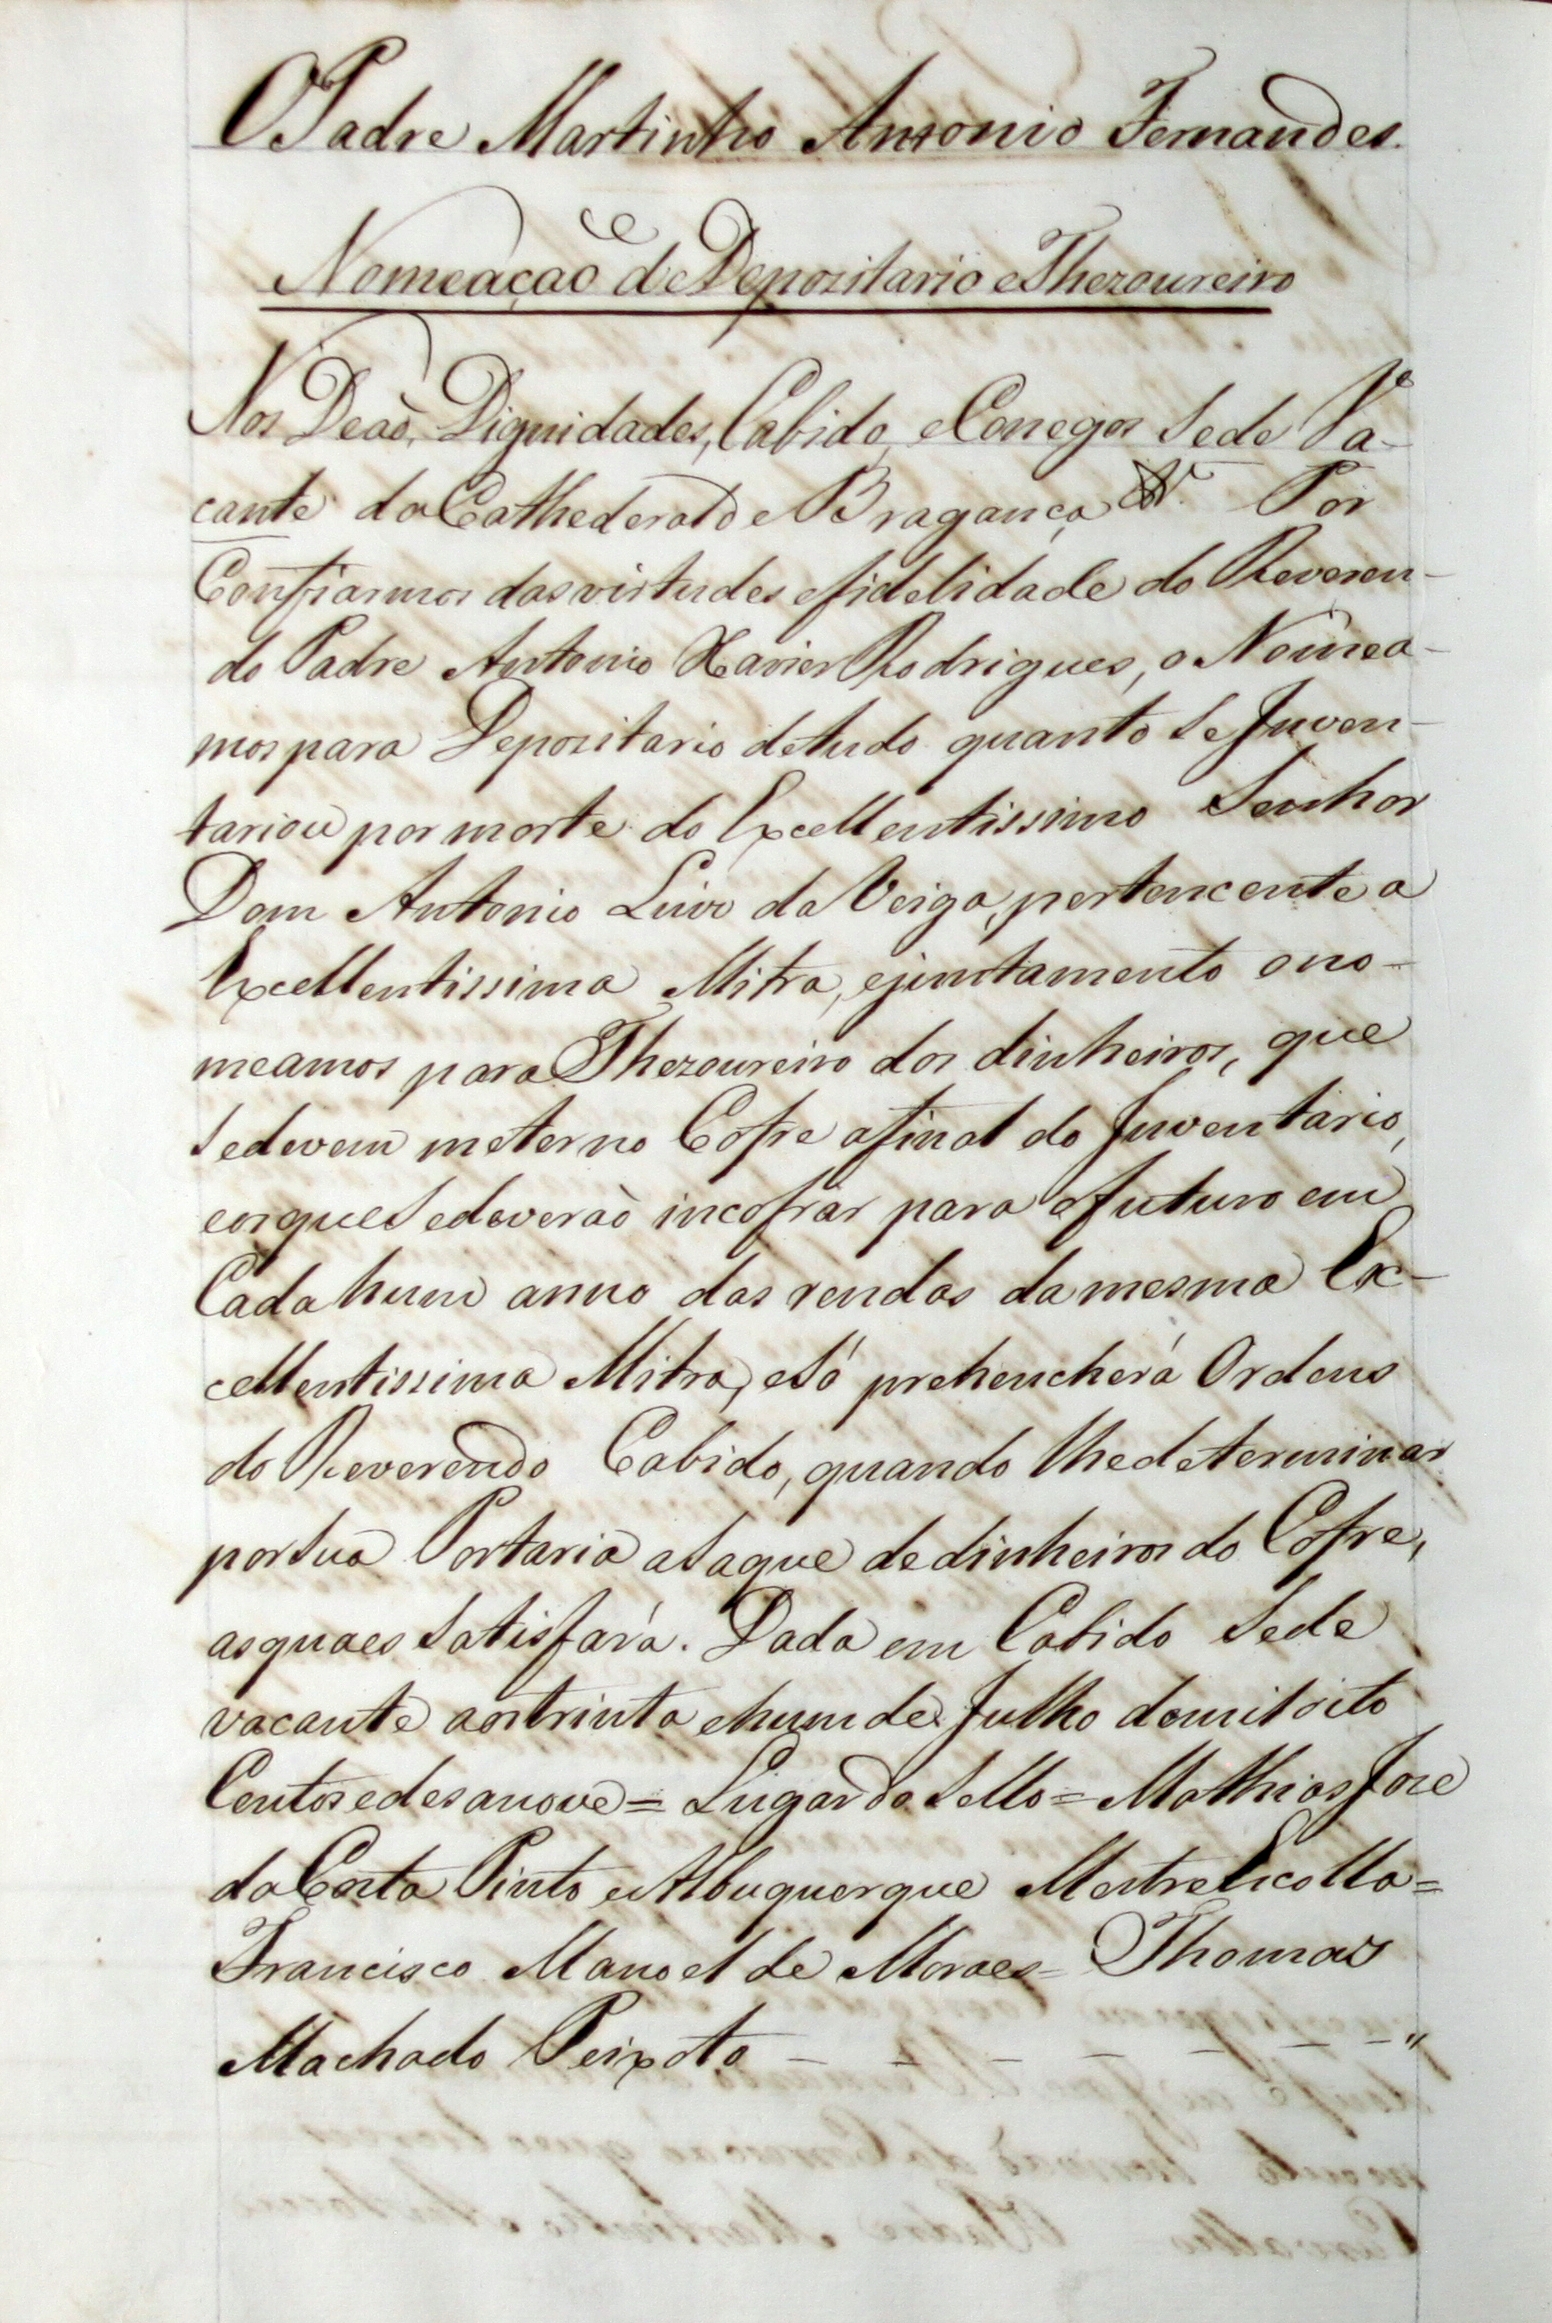 O Padre Martinho Antonio Fernandes.
Nomeaçaõ de Depozitario e Thezoureiro
Nos Deaõ, Dignidades, Cabido, e Conegos Sede Va-
cante da Cathederal de Bragança &.ª Por
Confiarmos das virtudes e fidelidade do Reveren-
do Padre Antonio Xavier Rodrigues, o Nomea-
mos para Depozitario de tudo quanto se Inven-
tariou por morte do Excellentissimo Senhor
Dom Antonio Luiz da Veiga, pertencente a
Excellentissima Mitra, e juntamento o no-
meamos para Thezoureiro dos dinheiros, que
se devem meter no Cofre a final do Inventario,
e os que se deveraõ incofrar para o futuro em
Cada hum anno das rendas da mesma Ex-
cellentissima Mitra, e só prehencherá Ordens
do Reverendo Cabido, quando lhe determinar
por sua Portaria a saque de dinheiros do Cofre,
as quaes satisfará. Dada em Cabido Sede
vacante aos trinta e hum de Julho de mil oito
Centos e desanove = Lugar do Sello = Mathias Joze
da Costa Pinto e Albuquerque Mestre Escolla =
Francisco Manoel de Moraes = Thomas
Machado Peixoto - - - - - - - - "